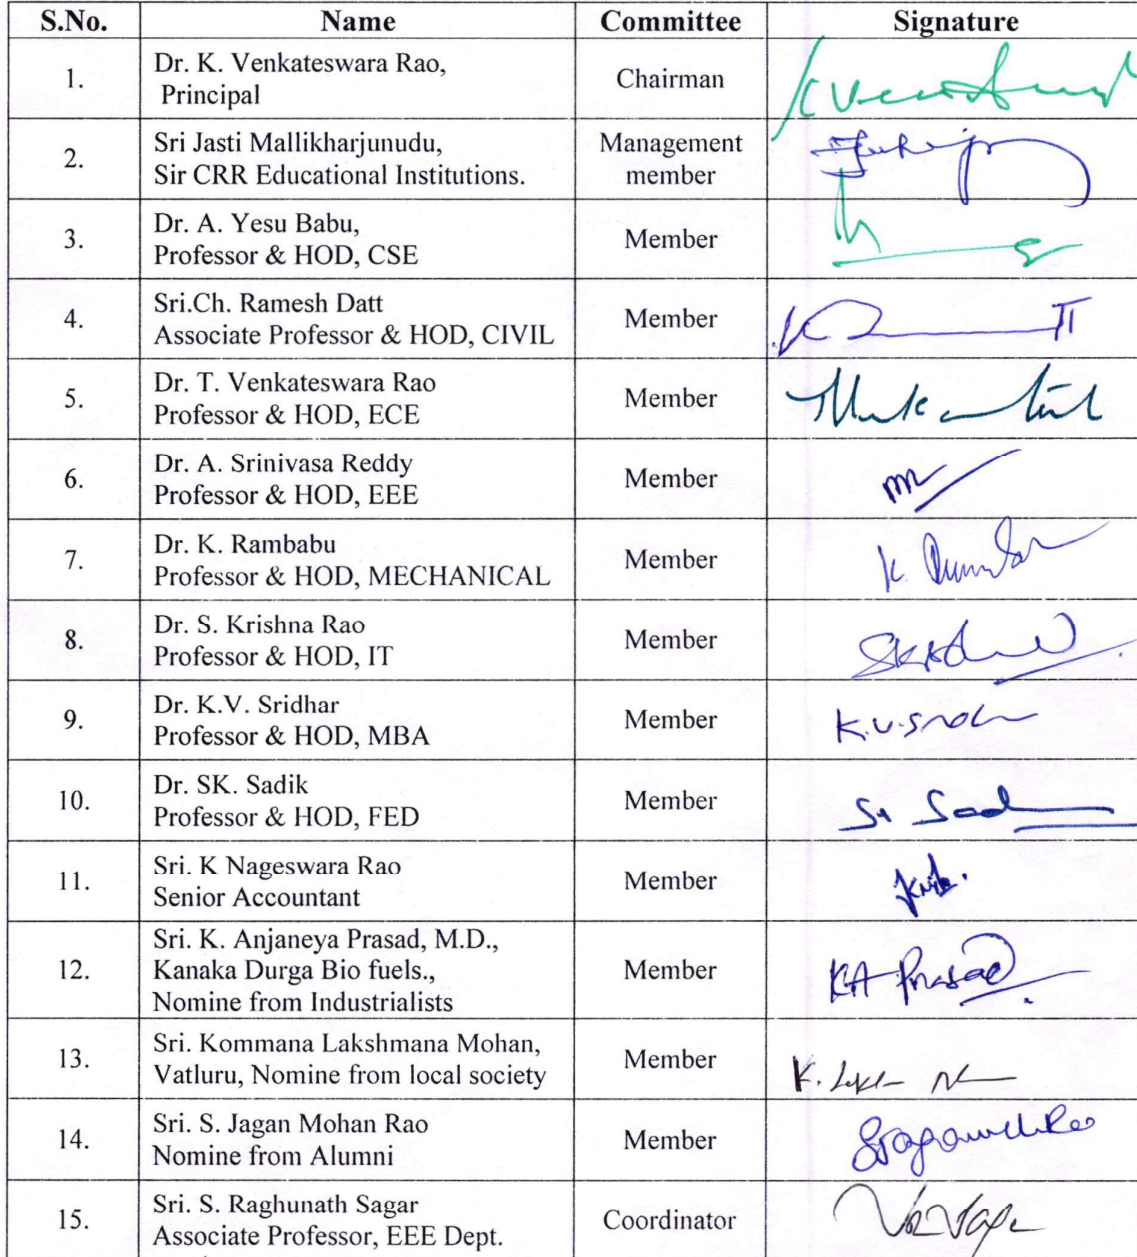 S.No. Name Committee Signature
1. Dr. K. Venkateswara Rao,
Principal Chairman
2. Sri Jasti Mallikharjunudu,
Sir CRR Educational Institutions. Management
member
3. Dr. A. Yesu Babu,
Professor & HOD, CSE Member
4. Sri.Ch. Ramesh Datt
Associate Professor & HOD, CIVIL Member
5. Dr. T. Venkateswara Rao
Professor & HOD, ECE Member
6. Dr. A. Srinivasa Reddy
Professor & HOD, EEE Member
7. Dr. K. Rambabu
Professor & HOD, MECHANICAL Member
8. Dr. S. Krishna Rao
Professor & HOD, IT Member
9. Dr. K.V. Sridhar
Professor & HOD, MBA Member
10. Dr. SK. Sadik
Professor & HOD, FED Member
11. Sri. K Nageswara Rao
Senior Accountant Member
12. Sri. K. Anjaneya Prasad, M.D.,
Kanaka Durga Bio fuels.,
Nomine from Industrialists Member KA Prasad
13. Sri. Kommana Lakshmana Mohan,
Vatluru, Nomine from local society Member
14. Sri. S. Jagan Mohan Rao
Nomine from Alumni Member
15. Sri. S. Raghunath Sagar
Associate Professor, EEE Dept. Coordinator